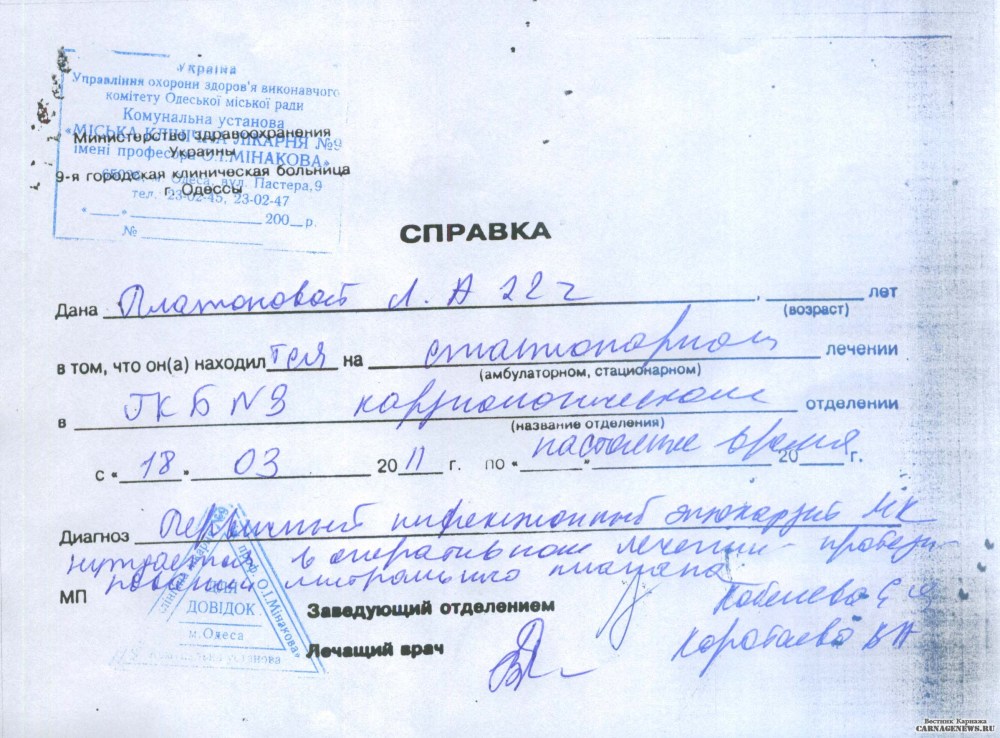 Україна
Управління охорони здоров'я виконавчого
комітету Одеської міської ради
Комунальна установа
«МІСЬКА КЛІНІЧНА ЛІКАРНЯ №9
імені професора О.І.МІНАКОВА»
м. Одеса, вул. Пастера,9
тел. 23-02-45, 23-02-47
200 р.
№
Министерство здравоохранения
Украины
9-я городская клиническая больница
г. Одессы
СПРАВКА
Дана Платоновой Л. А 22 г , лет
(возраст)
в том, что он(а) находил на стационарном лечении
(амбулаторном, стационарном)
в ГКБ N9 кардиологическом отделении
(название отделения)
с «18» 03 2011 г. по « » настоящее время 20 г.
Диагноз Первичный инфекционный эндокардит МК
нуждается в оперативном лечении - протези-
ровании митрального клапана
МП
ДОВІДОК
м.Одеса
проф. О.І.Мінакова»
Заведующий отделением
Лечащий врач
Вестник Карнажа
CARNAGENEWS.RU